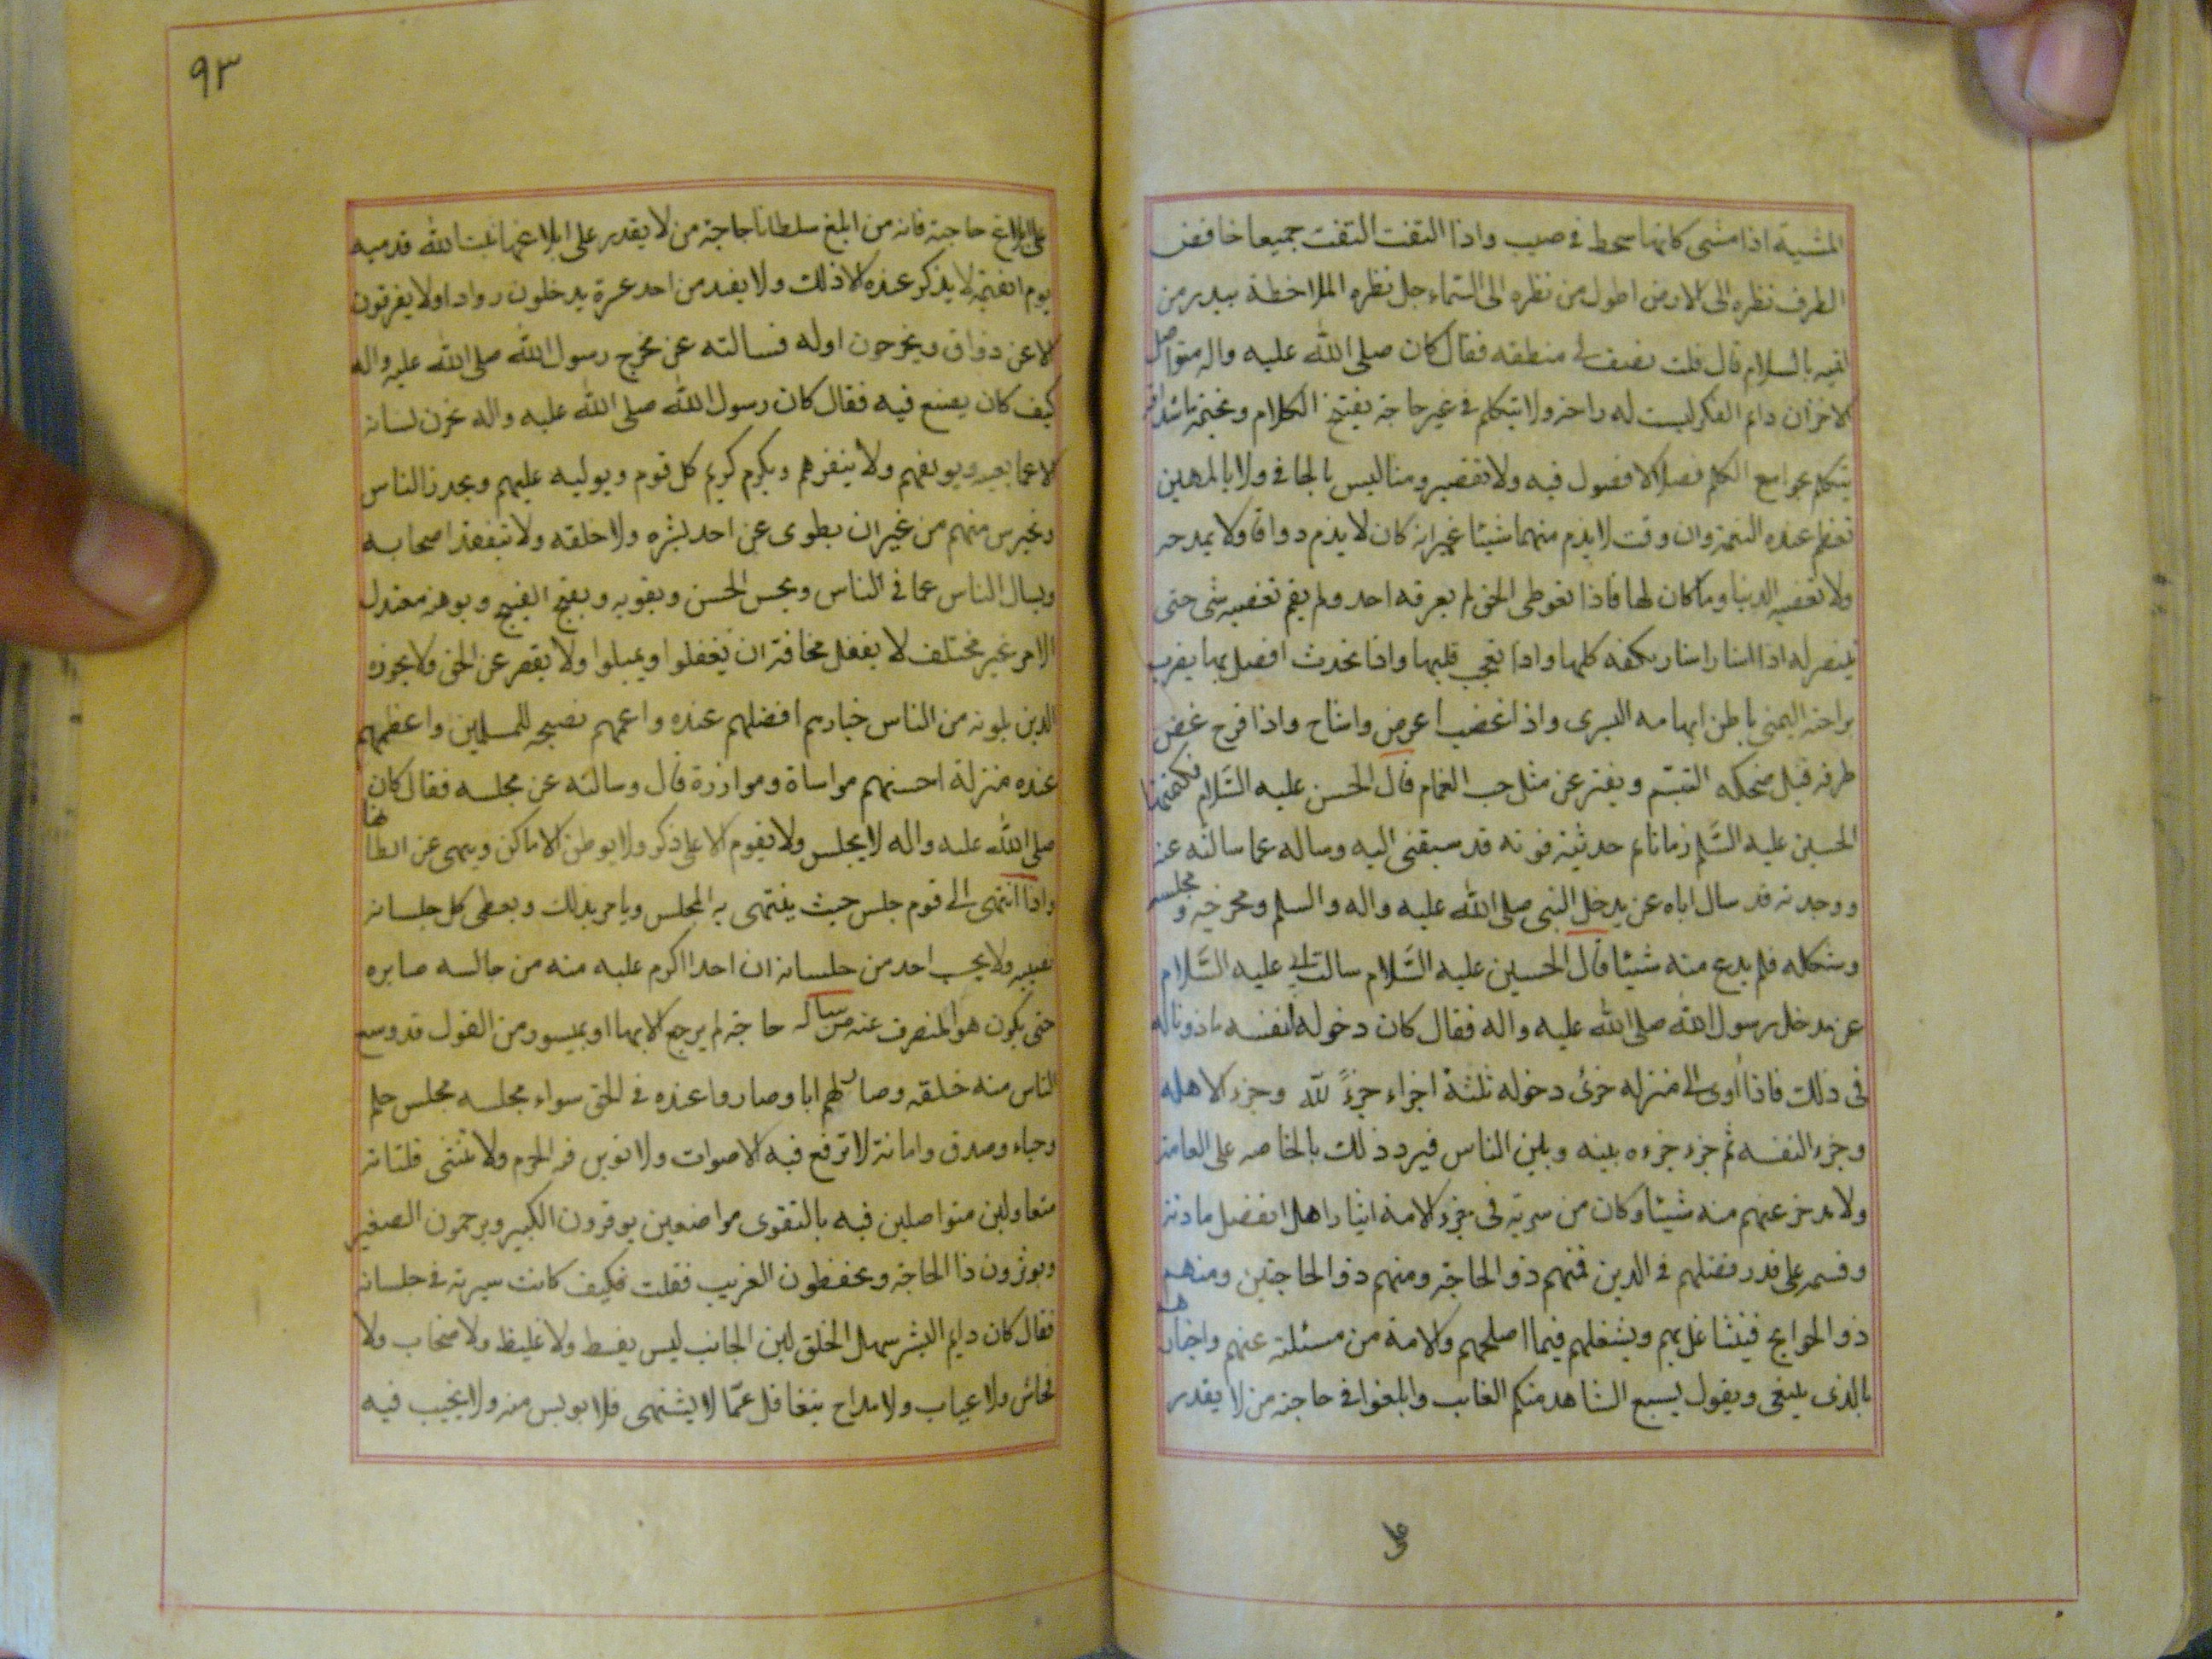 المشية اذا مشى كانما سحط فى صبب واذا التفت التفت جميعا خافض
الطرف نظره الى الارض اطول من نظره الى السّماء جل نظره الملاخطة يبدر من
لقيه بالسلام قال قلت نصف لى منطقه فقال كان صلى الله عليه واله متواصل
الاخزان دائم الفكر ليست له راحة ولا يتكلم فى غير حاجة يفتح الكلام ويختمه باشداقه
يتكلم بجوامع الكلم فصلا لا فضول فيه ولا تقصير ومنا ليس بالجافى ولا بالمهين
تعظم عنده النعمة وان وقت لا يذم منهما شيئا غير انه كان لا يذم دواقا ولا يمدحه
ولا تغضبه الدنيا وما كان لها فاذا تعوطى الحق لم يعرفه احد ولم يقم تغضبه شى حتى
ينتصر له اذا اشار اشار بكفه كلها واذا تعجب قلبها واذا تحدث افصل بها يضرب
براحته اليمنى باطن ابهامه اليسرى واذا غضب اعرض وانشاح واذا فرح غض
طرفه قبل ضحكه التبسّم ويفتر عن مثل حب الغمام قال الحسن عليه السَّلام فكتمتها
الحسين عليه السَّلم زمانا ثم حدثته فوته قد سبقنى اليه وساله عما سالته عنه
ووجدته قد سال اباه عن يدخل النبى صلى الله عليه واله والسلم ومخرجه و مجلسه
وشكله فلم يدع منه شيئا قال الحسين عليه السَّلام سالت ابى عليه السَّلام
عن مدخل رسول الله صلى الله عليه واله فقال كان دخوله لنفسه ماذونا له
فى ذلك فاذا اوى الى منزله جزئ دخوله ثلثة اجزاء جزءً لله وجزء لاهله
وجزء لنفسه ثم جزء جزءه بينه وبلين الناس فيرد ذلك بالخاصه على العامة
ولا يدخر عنهم منه شيئا وكان من سرية فى جزء الامة ايثار اهل الفضل مادنة
وقسمه على قدر فضلهم فى الدين فمنهم ذو الحاجة ومنهم ذو الحاجتين ومنهم
ذو الحوايج فيتشاغل بهم ويشغلهم فيما اصلحهم والامة من مسئلته عنهم واخبارهم
بالذى يلبغى ويقول ليسبع الشاهد منكم الغايب وابلغوا فى حاجة من لا يقدر
على ابلاغ حاجته فانه من ابلغ سلطانا حاجة من لا يقدر على ابلاغها ثبت الله قدميه
يوم القيمة لا يذكر عنده الا ذلك ولا يفيد من احد عسرة يدخلون روادا ولا يفرقون
الا عن ذواق ويخرجون اوله فسالته عن مخرج رسول الله صلى الله عليه واله
كيف كان يصنع فيه فقال كان رسول الله صلى الله عليه واله يخزن لسانه
الا عما يعنيه ويولفهم ولا ينفرهم ويكرم كريم كل قوم ويوليه عليهم ويحذر الناس
ويحترس منهم من غير ان يطوى عن احد بشره ولا خلقه ولا يتفقد اصحابه
ويسال الناس عما فى الناس ويحسن الحسن ويقويه ويقبح القبيح ويوهنه معتدل
الامر غير مختلف لا يغفل مخافة ان يغفلوا ويميلوا ولا يقصر عن الحق ولا يجوزه
الذين يلونه من الناس خيارهم افضلهم عنده واعمهم نصيحه للمسلمين واعظمهم
عنده منزلة احسنهم مواساة وموازرة قال وسالته عن مجلسه فقال كان
صلى الله عليه واله لا يجلس ولا يقوم الا على ذكر ولا يوطن الاماكن وينهى عن ايطانها
واذا انتهى الى قوم جلس حيث ينتهى به المجلس ويامر بذلك ويعطى كل جلسانه
نصيبه ولا يحسب احد من جلسانه ان احدا اكرم عليه منه من جالسه صابره
حتى يكون هو المنصرف عنه من ساله حاجة لم يرجع الا بها او بميسور من القول قد وسع
الناس منه خلقه وصار لهم ابا وصاروا عنده فى الحق سواء مجلسه مجلس حلم
وحياء وصدق وامانة لا ترفع فيه الاصوات ولا توبن فيه الحرم ولا تنثى فلتاته
متعاولين متواصلين فيه بالتقوى مواضعين يوقرون الكبير ويرحمون الصغير
ويوثرون ذا الحاجة ويحفظون الغريب فقلت فكيف كانت سيرته فى جلسانه
فقال كان دايم البشر سهل الخلق لين الجانب ليس بفسط ولا غليظ ولا صخاب ولا
فحاش ولا عياب ولا مداح يتغافل عمّا لا يشتهى فلا يويس منه ولا يخيب فيه
٩٣